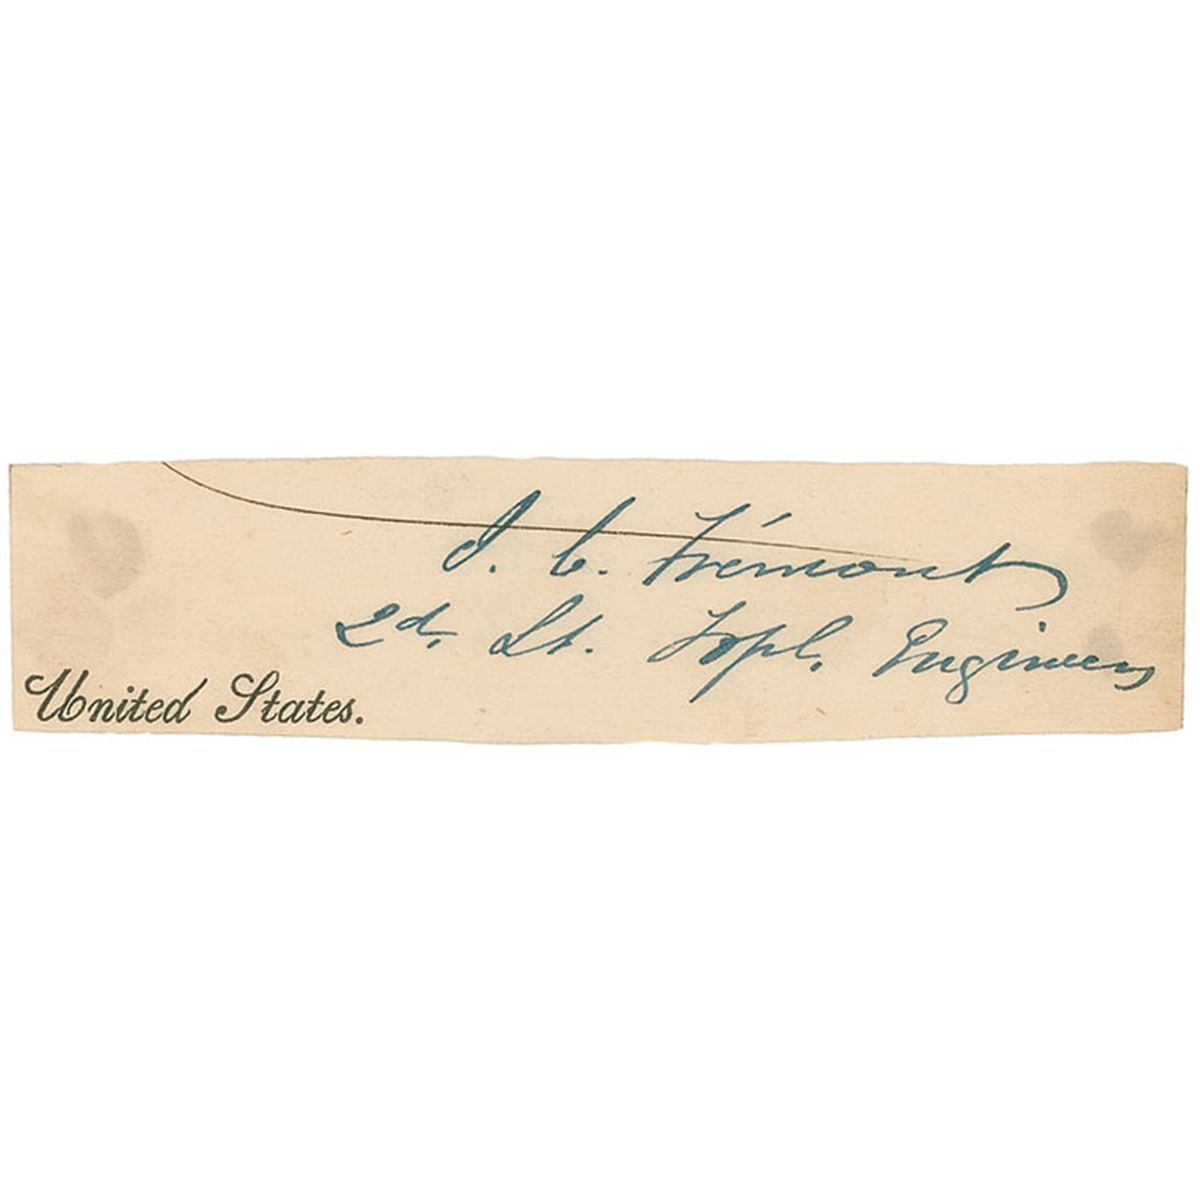 J. C. Frémont
2d. Lt. Topl. Engineers
United States.